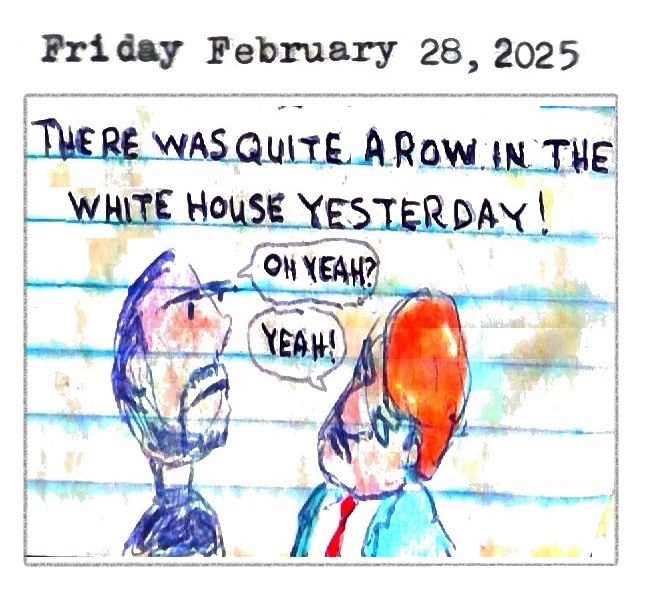 Friday February 28, 2025
THERE WAS QUITE A ROW IN THE
WHITE HOUSE YESTERDAY!
OH YEAH?
YEAH!